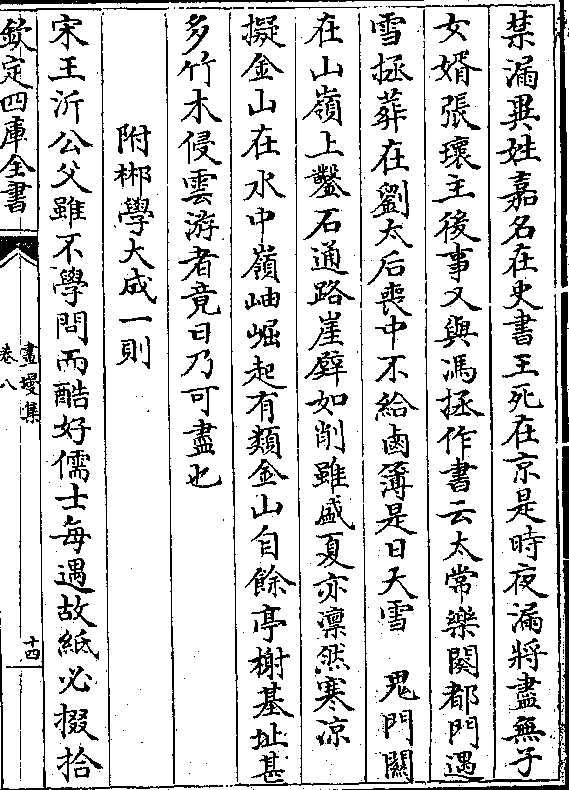 禁漏異姓嘉名在史書王死在京是時夜漏將盡無子
女婿張瓌主後事又與馮拯作書云太常樂闋都門遇
雪拯葬在劉太后喪中不給鹵簿是日天雪　鬼門關
在山嶺上鑿石通路崖壁如削雖盛夏亦凛然寒凉
擬金山在水中嶺岫崛起有類金山自餘亭榭基址甚
多竹木侵雲游者竟日乃可盡也
附郴學大成一則
宋王沂公父雖不學問而酷好儒士每遇故紙必掇拾
欽定四庫全書
畫墁集
卷八
十四